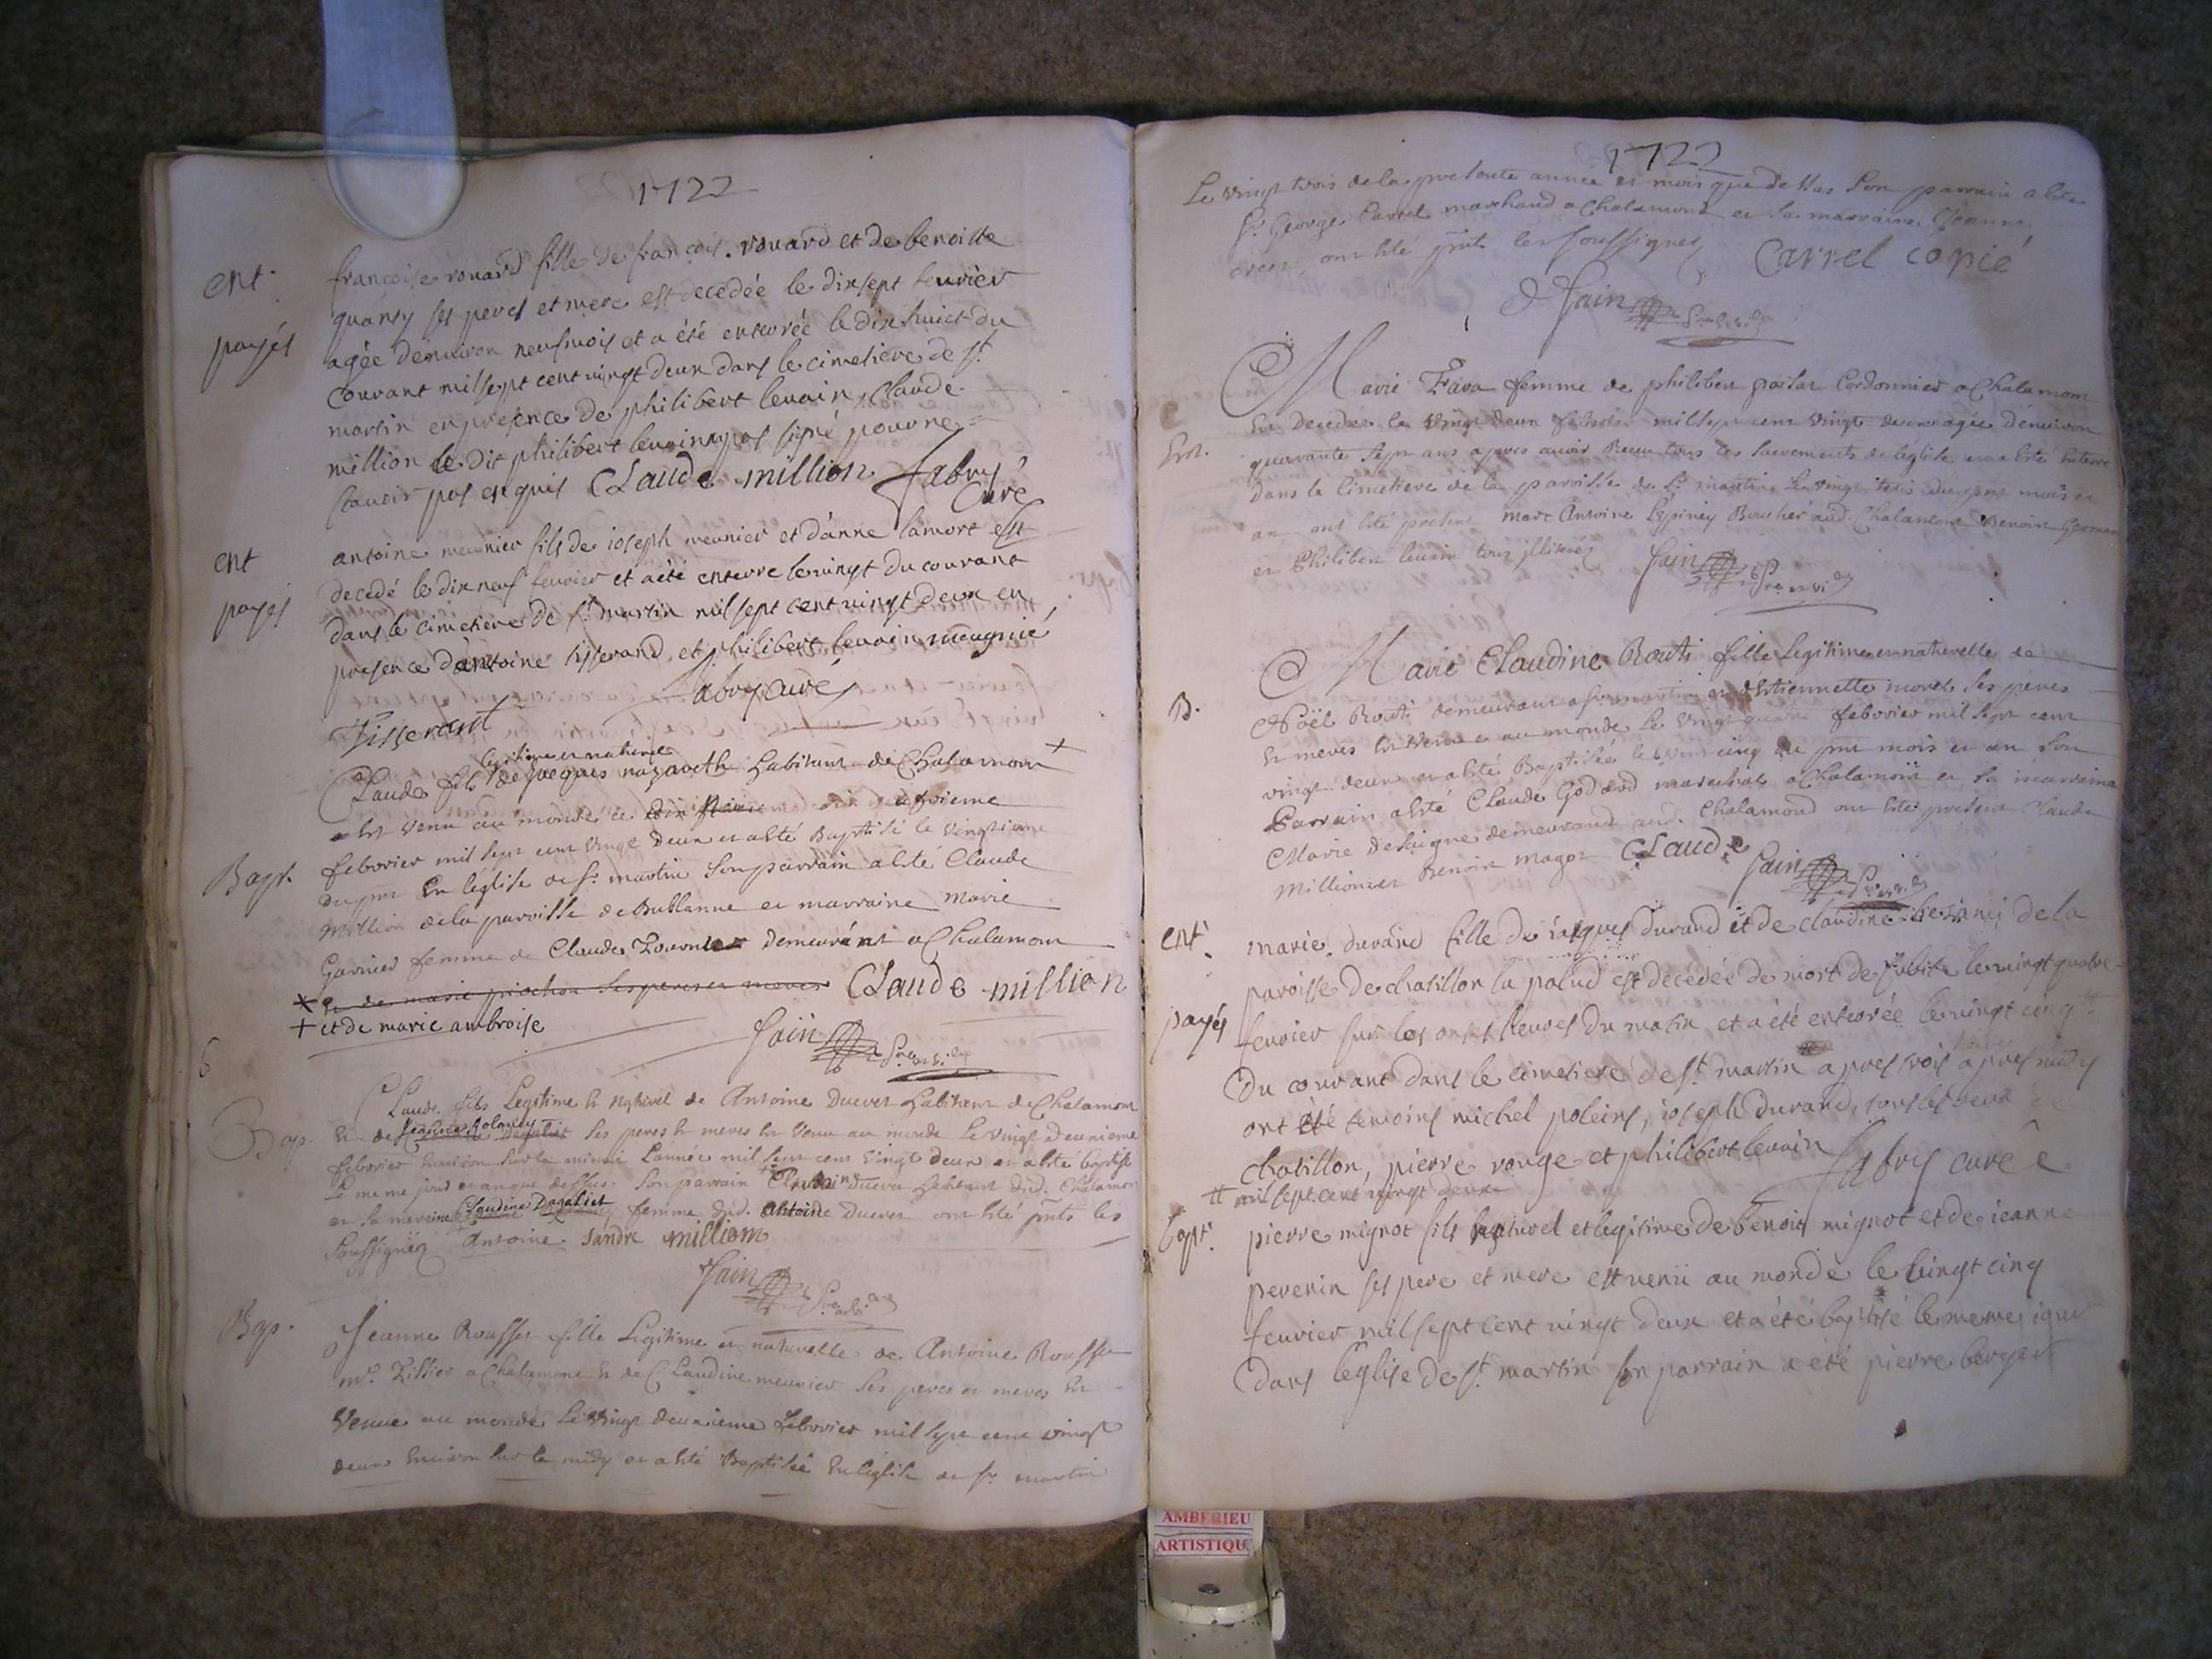 1722
ent. françoise rouard fille de françois rouard et de benoiste
quarsy ses peres et mere est decedée le dixsept feuvrier
payés agée denuiron neufmois et a été enterrée le dixhuict du
courant mil sept cent vingt deux dans le cimetiere de st
martin en presence de philibert levrain, claude
million le dit philibert levrain n'a pas signé pour ne
scauoir pas enquis Claude million fabry
curé
ent antoine meunier fils de ioseph meunier et d'anne lamort est
decedé le dix neuf feuvrier et a été enterre le vingt du courant
payes dans le cimetiere de st martin mil sept cent vingt deux en
presence d'antoine tisserand et philibert levrain meugnié
fabry curé
Tisserant
legitime et naturel
Claude fils de jacques nazareth habitant de Chalamont +
est venu au monde le dix neuvieme
febvrier mil sept cent vingt deux et a esté Baptisé le vingtieme
Bapt. du pnt En l'église de st martin Son parrain a esté Claude
million de la paroisse de Bublanne et marraine marie
Garnier femme de Claude demeurant a Chalamont
* et de marie ses peres et meres Claude million
+ et de marie ambroise
Jain
6
Claude fils Legitime et naturel de Antoine Ducret habitant de Chalamont
Bap. Et de Jeanne Rolandy ses peres et meres est Venu au monde Le vingt deuxieme
febvrier Environ sur la minuit L'année mil sept cent vingt deux et a esté baptisé
Le meme jour et an que dessus. Son parrain Ducret habitant dud. Chalamont
et sa mareine Claudine Dagallet femme dud. antoine Ducret ont esté pnts les
Soussignéz Antoine sandre milliom
Jain
Bap. Jeanne Rousset fille Legitime et naturelle de Antoine Rousset
mr. Tissier a Chalamont et de Claudine meunier ses peres et meres Est
Venue au monde Le vingt deuxieme febvrier mil sept cent vingt
deux Environ sur le midy et a esté Baptisée En l'église de st martin
1722
Le vingt trois de la presente année et mois que dessus Son parrain a esté
Sr George Carrel marchand a Chalamont et sa marraine Jeanne
ont esté pnts les soussignez Carrel copié
Jain
Marie Fara femme de philibert Cordonnier a Chalamont
Est decedée le vingt deux febvrier mil sept cent vingt deux agée denviron
Ent. quarante sept ans apres avoir Receu tous les sacrements de l'église et a esté Enterré
dans le Cimetiere de la paroisse de st martin Le vingt trois du pnt mois et
an ont esté present marc Antoine Lespiney Boucher aud. Chalamont Benoist
et Philibert levrain tous illitrés
Jain
Marie Claudine Routi fille Legitime et naturelle de
B. Noël Routi demeurant a st martin et d'Estiennette morel ses peres
Et meres Est Venue au monde Le vingt quatre febvrier mil sept cent
vingt deux et a esté Baptisée le vint cinq du pnt mois et an Son
Parrain a esté Claude Godard marechal a Chalamont et sa marraine
Marie deseigne demeurand aud. Chalamond ont Esté present Claude
Million et Benoist magot Claude
Jain
ent. marie durand fille de iacques durand et de claudine de la
paroisse de chatillon la palud est decedée de mort de subite le vingt quatre
payés feuvrier sur les onses heures du matin et a été enterrée le vingt cinq #
du courant dans le cimetiere de st martin apres trois apres midy
ont été temoins michel poleins, ioseph durand, tous les deux de
chatillon, pierre rouge et philibert levrain fabry curé
# mil sept cent vingt deux
bapt. pierre mignot fils naturel et legitime de benoist mignot et de ieanne
peverin ses pere et mere est venu au monde le vingt cinq
feuvrier mil sept cent vingt deux et a été baptisé le meme iour
dans l'église de st martin son parrain a été pierre berger
AMBERIEU
ARTISTIQU